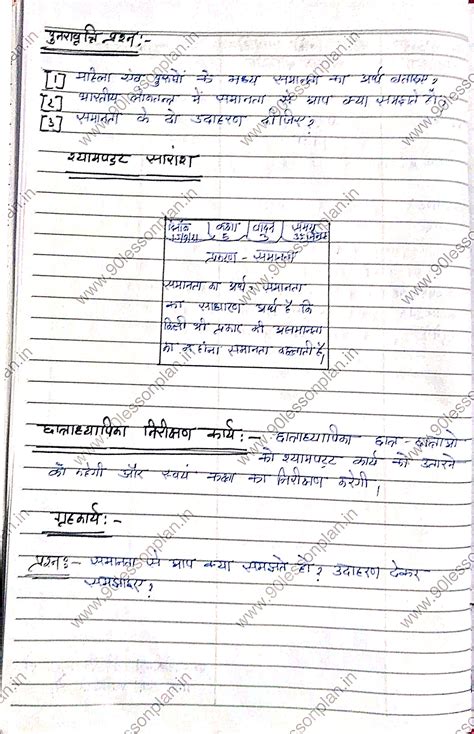 पुनरावृत्ति प्रश्न:-
[1] महिला एवं पुरुषों के मध्य समानता का अर्थ बताइए?
[2] भारतीय लोकतन्त्र में समानता से आप क्या समझते हो?
[3] समानता के दो उदाहरण दीजिए?
श्यामपट्ट सारांश
दिनांक कक्षा समय
प्रकरण - समानता
समानता का अर्थ:- समानता
का साधारण अर्थ है कि
किसी भी प्रकार की असमानता
का न होना समानता कहलाती है,
छात्राध्यापिका निरीक्षण कार्य:- छात्राध्यापिका छात्र-छात्राओं
को श्यामपट्ट कार्य को उतारने
को कहेगी और स्वयं कक्षा का निरीक्षण करेगी।
गृहकार्य:-
प्रश्न:- समानता से आप क्या समझते हो? उदाहरण देकर
समझाइए?
www.90lessonplan.in